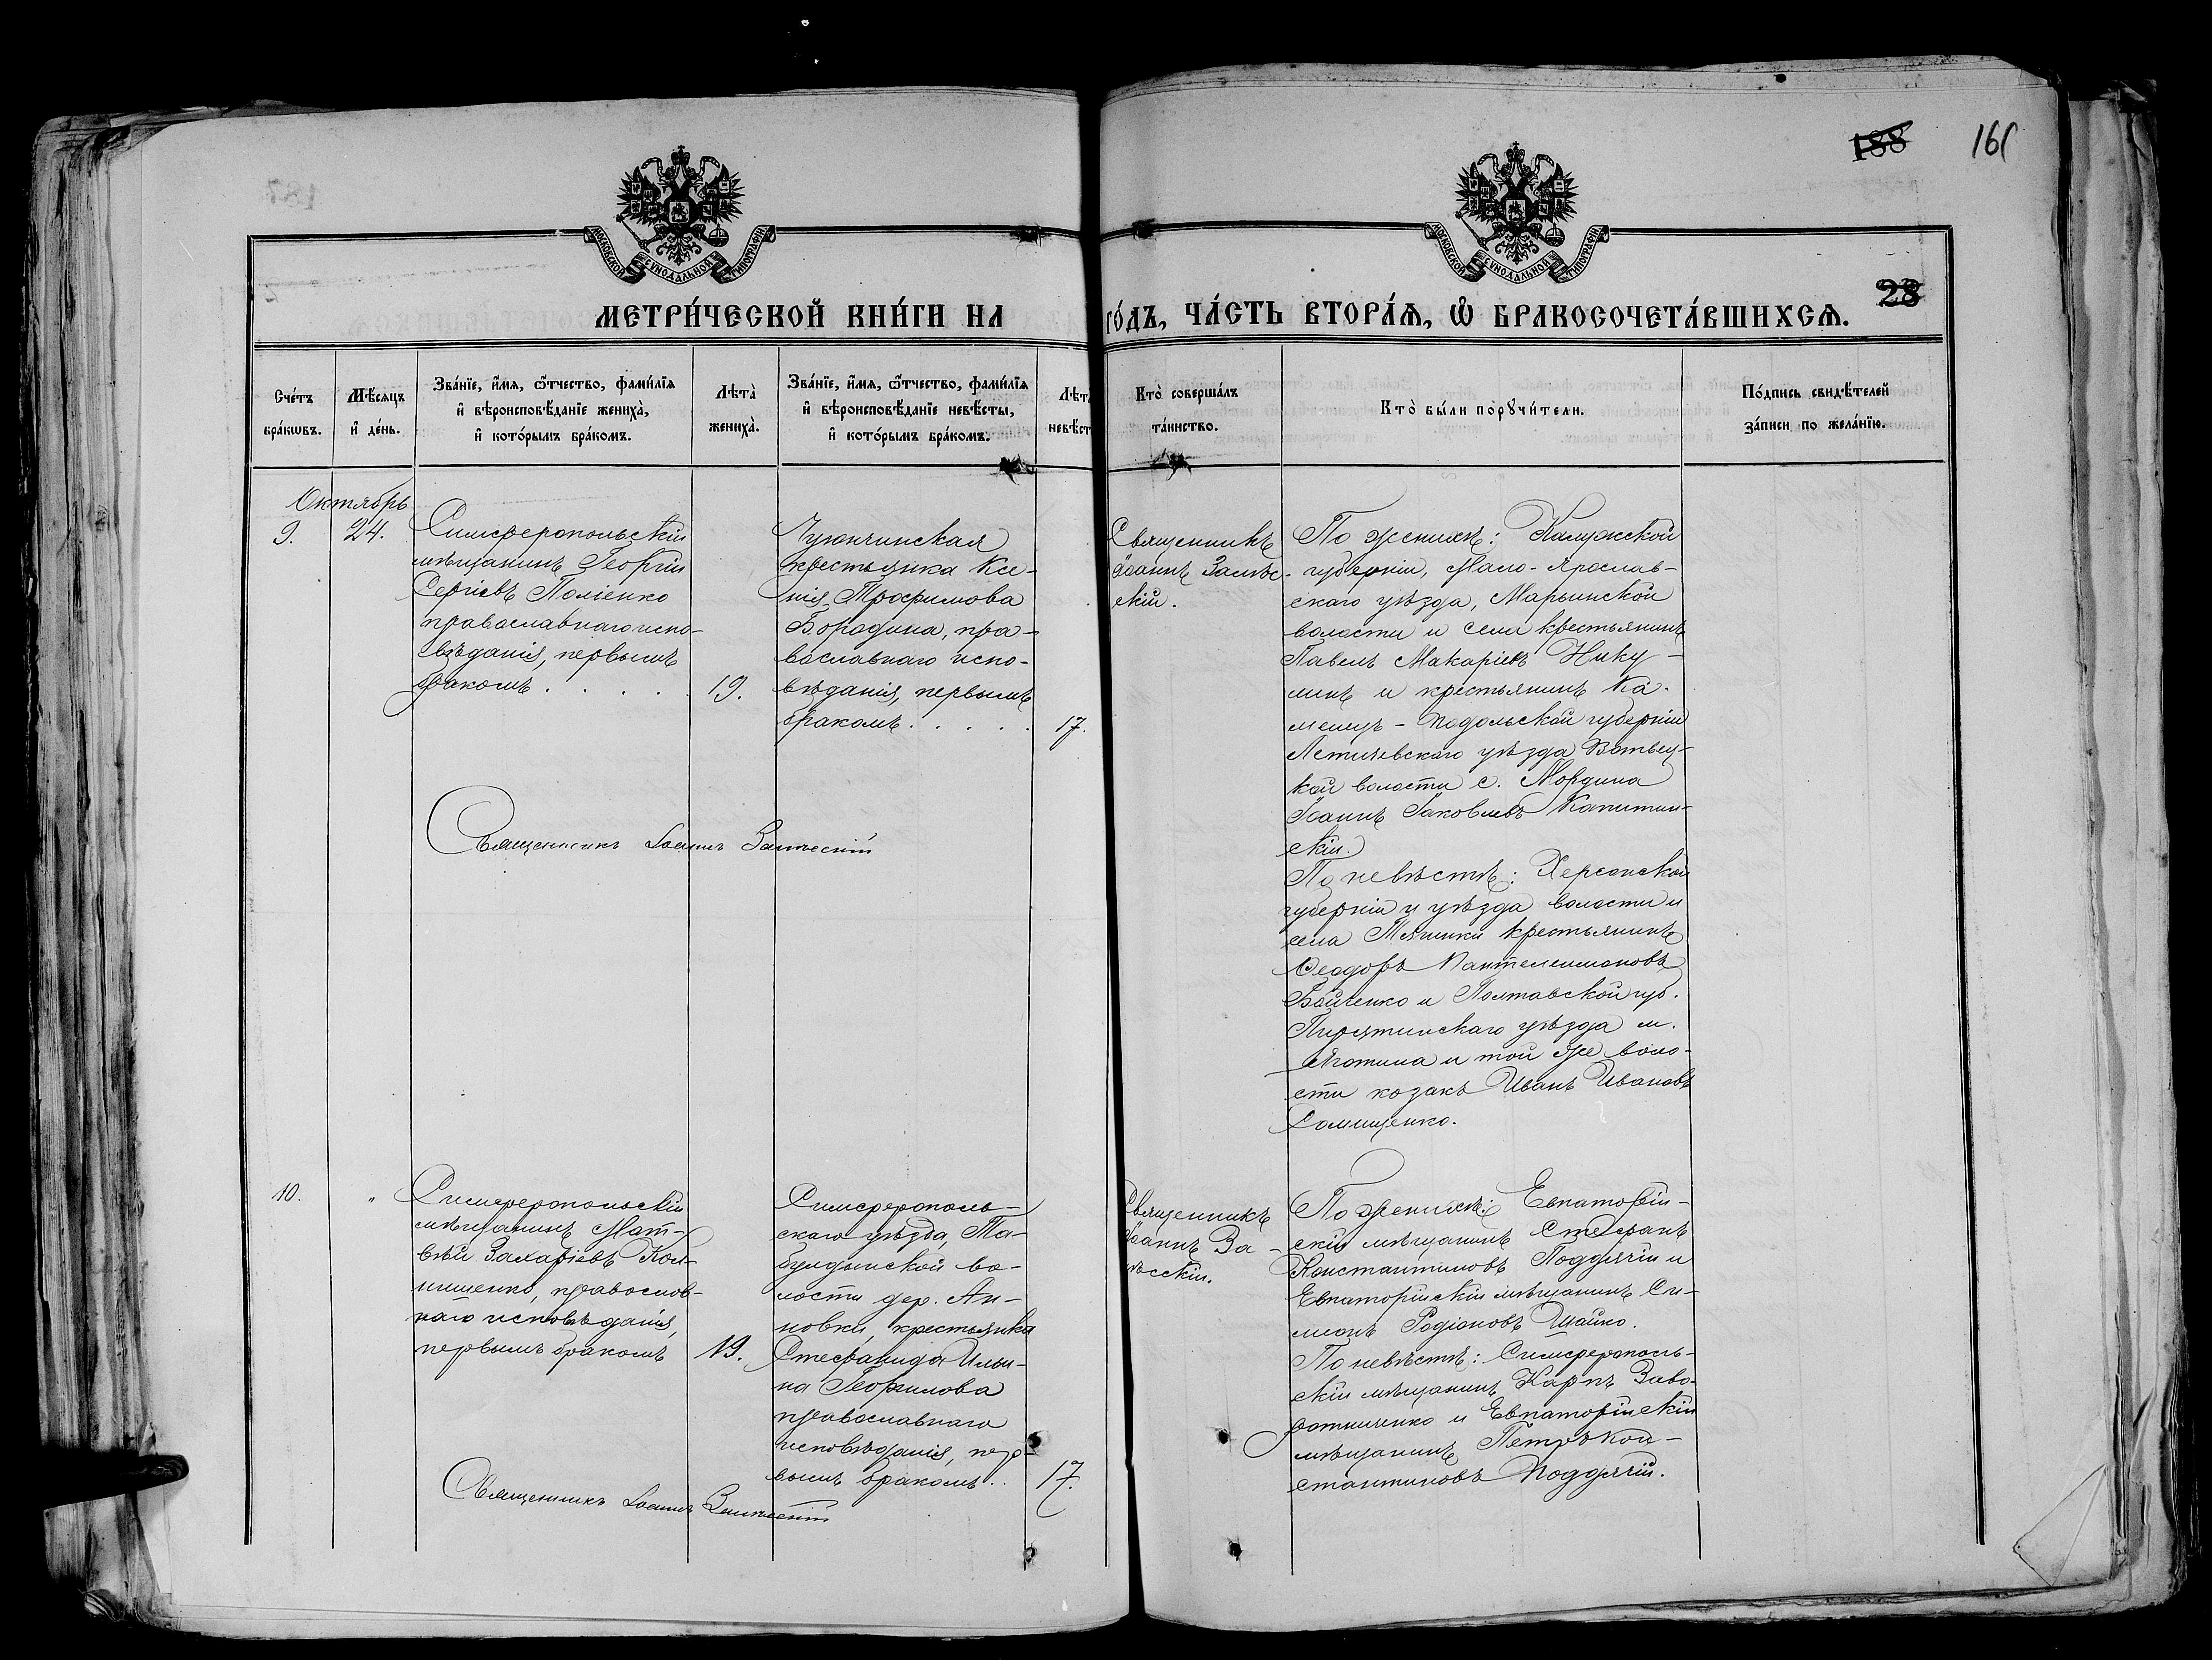 188
161
МОСКОВСКОЙ СУНОДАЛЬНОЙ ТИПОГРАФІИ
МОСКОВСКОЙ СУНОДАЛЬНОЙ ТИПОГРАФІИ
28
МЕТРИ́ЧЕСКОЙ КНИ́ГИ НА
ГО́ДЪ, ЧА́СТЬ ВТОРА́Я, Ѡ БРАКОСОЧЕТА́ВШИХСЯ.
Сче́тъ
бра́кѡвъ.
Мѣ́сяцъ
и҆ де́нь.
Зва́нїе, и҆́мя, ѻ҆́тчество, фами́лїя
и҆ вѣроисповѣ́данїе жениха̀,
и҆ кото́рымъ бра́комъ.
Лѣта̀
жениха̀.
Зва́нїе, и҆́мя, ѻ҆́тчество, фами́лїя
и҆ вѣроисповѣ́данїе невѣ́сты,
и҆ кото́рымъ бра́комъ.
Лѣта
невѣст
Кто̀ соверша́лъ
та́инство.
Кто̀ бы́ли порꙋчи́тели.
По́дпись свидѣ́телей
за́писи по жела́нїю.
Октябрь
9.
24.
Симферопольскій
мѣщанинъ Георгій
Сергіевъ Поліенко
православнаго испо-
вѣданія, первымъ
бракомъ . . . . .
19.
крестьянка Ксе-
нія Трофимова
Бородина, пра-
вославнаго испо-
вѣданія, первымъ
бракомъ . . . . .
17.
Священникъ
Іоаннъ Залѣс-
скій.
По женихѣ: Калужской
губерніи, Мало-Ярослав-
скаго уѣзда, Марьинской
волости и села крестьянинъ
Павелъ Макаріевъ Нику-
линъ и крестьянинъ Ка-
менецъ-Подольской губерніи
Летичевскаго уѣзда
кой волости с.
Іоаннъ Іаковлевъ Капитан-
скій.
По невѣстѣ: Херсонской
губерніи и уѣзда волости и
села Тягинки крестьянинъ
Ѳеодоръ Пантелеимоновъ
Бойченко и Полтавской губ.
Пирятинскаго уѣзда м.
Яготина и той же воло-
сти козакъ Иванъ Ивановъ
Священникъ Іоаннъ Залѣсскій
10.
"
Симферопольскій
мѣщанинъ Мат-
вѣй Захаріевъ
православ-
наго исповѣданія,
первымъ бракомъ
19.
Симферополь-
скаго уѣзда, Та-
булдынской во-
лости дер. Ан-
новки, крестьянка
Стефанида Ильи-
на
православнаго
исповѣданія, пер-
вымъ бракомъ. .
17.
Священникъ
Іоаннъ За-
лѣсскій.
По женихѣ: Евпаторій-
скій мѣщанинъ Стефанъ
Константиновъ Поддячій и
Евпаторійскій мѣщанинъ Си-
меонъ Родіоновъ Шайко.
По невѣстѣ: Симферополь-
скій мѣщанинъ Карпъ Заво-
ротниченко и Евпаторійскій
мѣщанинъ Петръ Кон-
стантиновъ Поддячій.
Священникъ Іоаннъ Залѣсскій